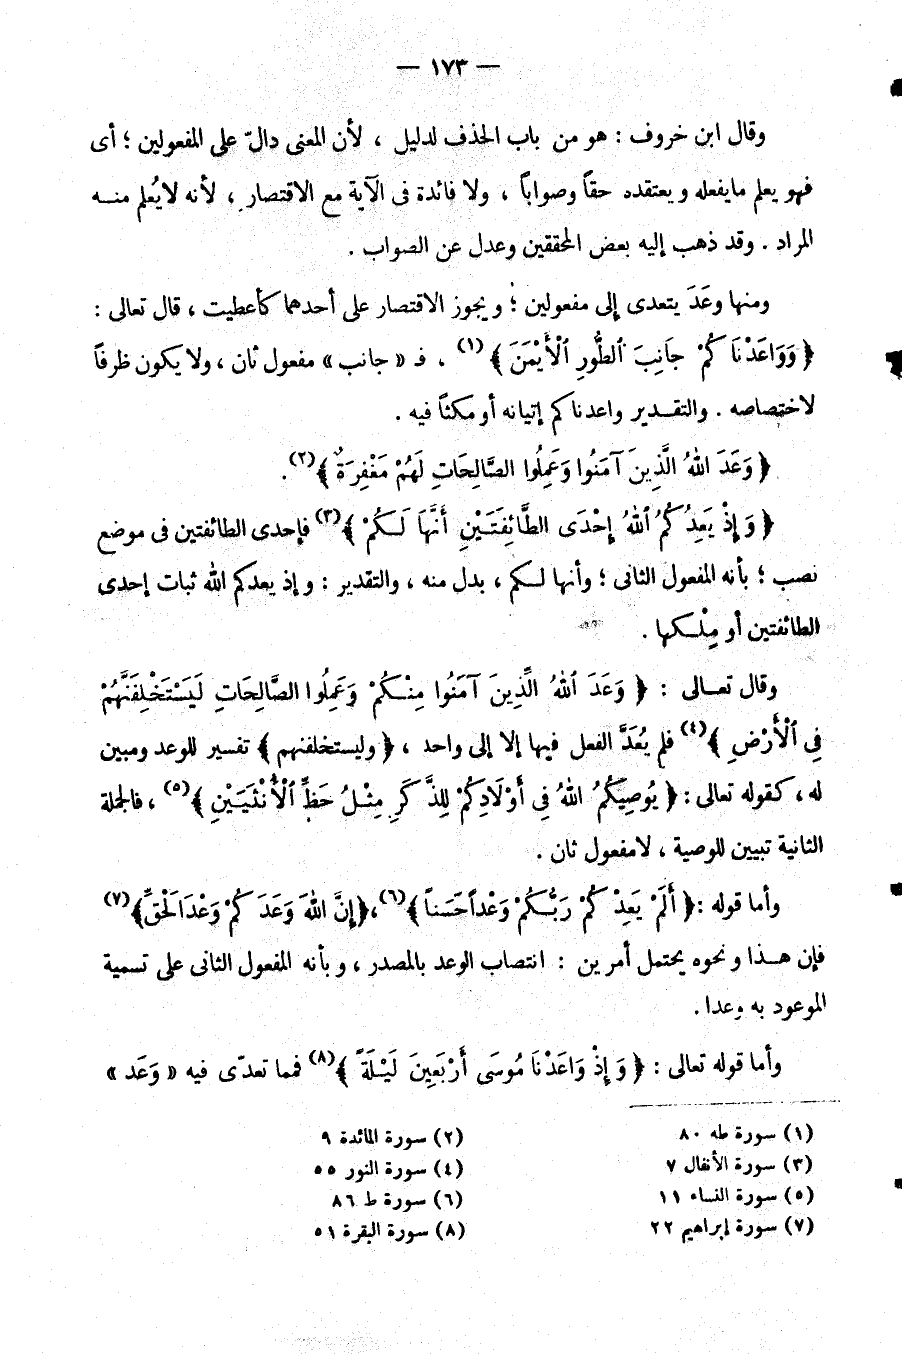 — ١٧٣ —
وقال ابن خروف : هو من باب الحذف لدليل ، لأن المعنى دالّ على المفعولين ؛ أى
فهو يعلم مايفعله ويعتقده حقاً وصواباً ، ولا فائدة فى الآية مع الاقتصار ، لأنه لايُعلم منـه
المراد . وقد ذهب إليه بعض المحققين وعدل عن الصواب .
ومنها وعَدَ يتعدى إلى مفعولين ؛ ويجوز الاقتصار على أحدهما كأعطيت ، قال تعالى :
﴿ وَوَاعَدْنَاكُمْ جَانِبَ ٱلطُّورِ ٱلْأَيْمَنَ ﴾(١) . فـ « جانب » مفعول ثان ، ولا يكون ظرفاً
لاختصاصه . والتقـدير واعدناكم إتيانه أو مكثاً فيه .
﴿ وَعَدَ اللهُ الَّذِينَ آمَنُوا وَعَمِلُوا الصَّالِحَاتِ لَهُمْ مَغْفِرَةٌ ﴾(٢) .
﴿ وَإِذْ يَعِدُكُمُ ٱللهُ إِحْدَى الطَّائِفَتَـيْنِ أَنَّهَا لَـكُمْ ﴾(٣) فإحدى الطائفتين فى موضع
نصب ؛ بأنه المفعول الثانى ؛ وأنها لـكم ، بدل منه ، والتقدير : وإذ يعدكم الله ثبات إحدى
الطائفتين أو مِلْـكها .
وقال تعـالى : ﴿ وَعَدَ ٱللهُ الَّذِينَ آمَنُوا مِنْـكُمْ وَعَمِلُوا الصَّالِحَاتِ لَيَسْتَخْلِفَنَّهُمْ
فِي ٱلْأَرْضِ ﴾(٤) فلم يُعَدَّ الفعل فيها إلا إلى واحد ، ﴿ وليستخلفنهم ﴾ تفسير للوعد ومبين
له ، كقوله تعالى : ﴿ يُوصِيكُمُ اللهُ فِى أَوْلَادِكُمْ لِلذَّكَرِ مِثْـلُ حَظِّ ٱلْأُنْثَيَـيْنِ ﴾(٥) ، فالجملة
الثانية تبيين للوصية ، لامفعول ثان .
وأما قوله : ﴿ أَلَمْ يَعِدْكُمْ رَبُّـكُمْ وَعْداً حَسَناً ﴾(٦)، ﴿ إِنَّ اللهَ وَعَدَكُمْ وَعْدَ الْحَقِّ ﴾(٧)
فإن هـذا ونحوه يحتمل أمرين : انتصاب الوعد بالمصدر ، وبأنه المفعول الثانى على تسمية
الموعود به وعدا .
وأما قوله تعالى : ﴿ وَإِذْ وَاعَدْنَا مُوسَى أَرْبَعِينَ لَيْـلَةً ﴾(٨) فمما تعدّى فيه « وَعَد »
(١) سورة طه ٨٠
(٢) سورة المائدة ٩
(٣) سورة الأنفال ٧
(٤) سورة النور ٥٥
(٥) سورة النساء ١١
(٦) سورة ط ٨٦
(٧) سورة إبراهيم ٢٢
(٨) سورة البقرة ٥١